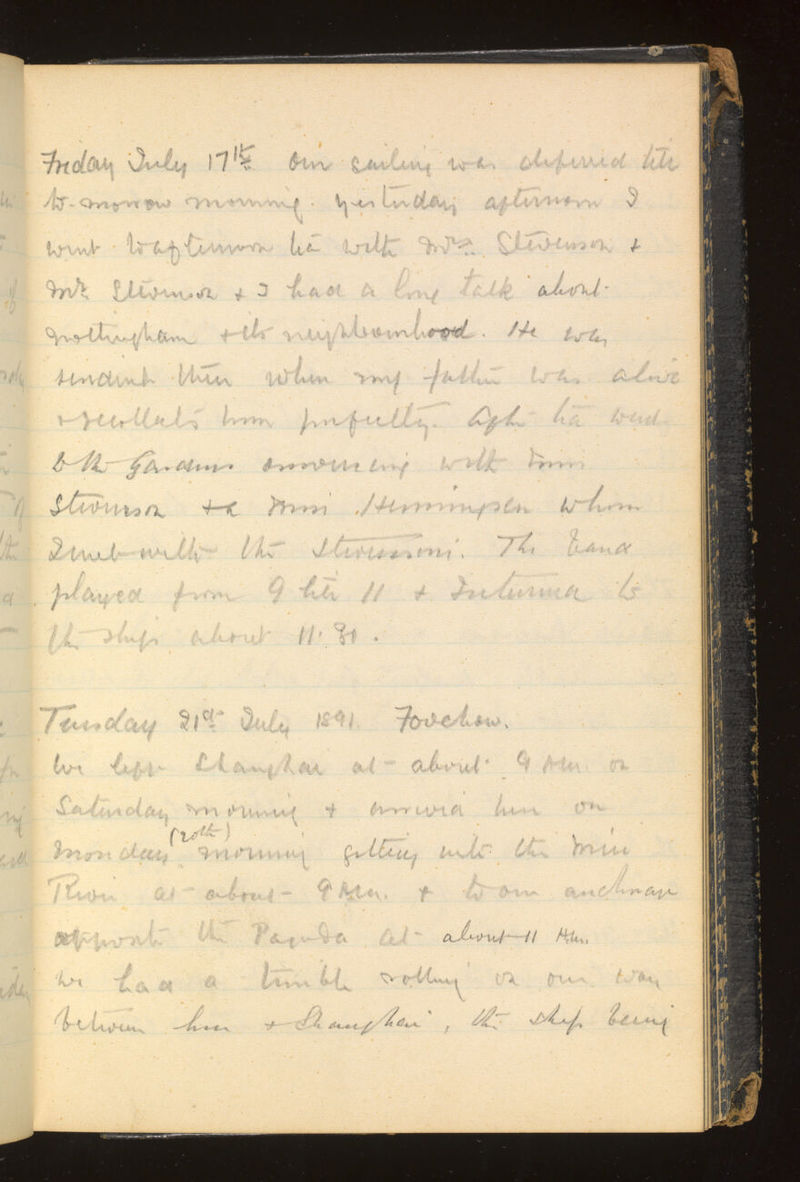 Friday July 17th. Our sailing was deferred till
to-morrow morning. Yesterday afternoon I
went to afternoon tea with Mrs. Stevenson &
Mr. Stevenson & I had a long talk about
Nottingham & its neighbourhood. He was
resident there when my father was alive
& recollects him perfectly. After tea went
to the Gardens with Miss
Stevenson & a Miss Henningsen whom
I met with the Stevensons. The band
played from 9 till 11 & I returned to
the ship about 11.30.
Tuesday 21st July 1891. Foochow.
We left Shanghai at about 9 AM. on
Saturday morning & arrived here on
Monday (20th) morning getting into the Min
River at about 9 AM. & to our anchorage
opposite the Pagoda at about 11 AM.
We had a terrible rolling on our way
between here & Shanghai, the ship being